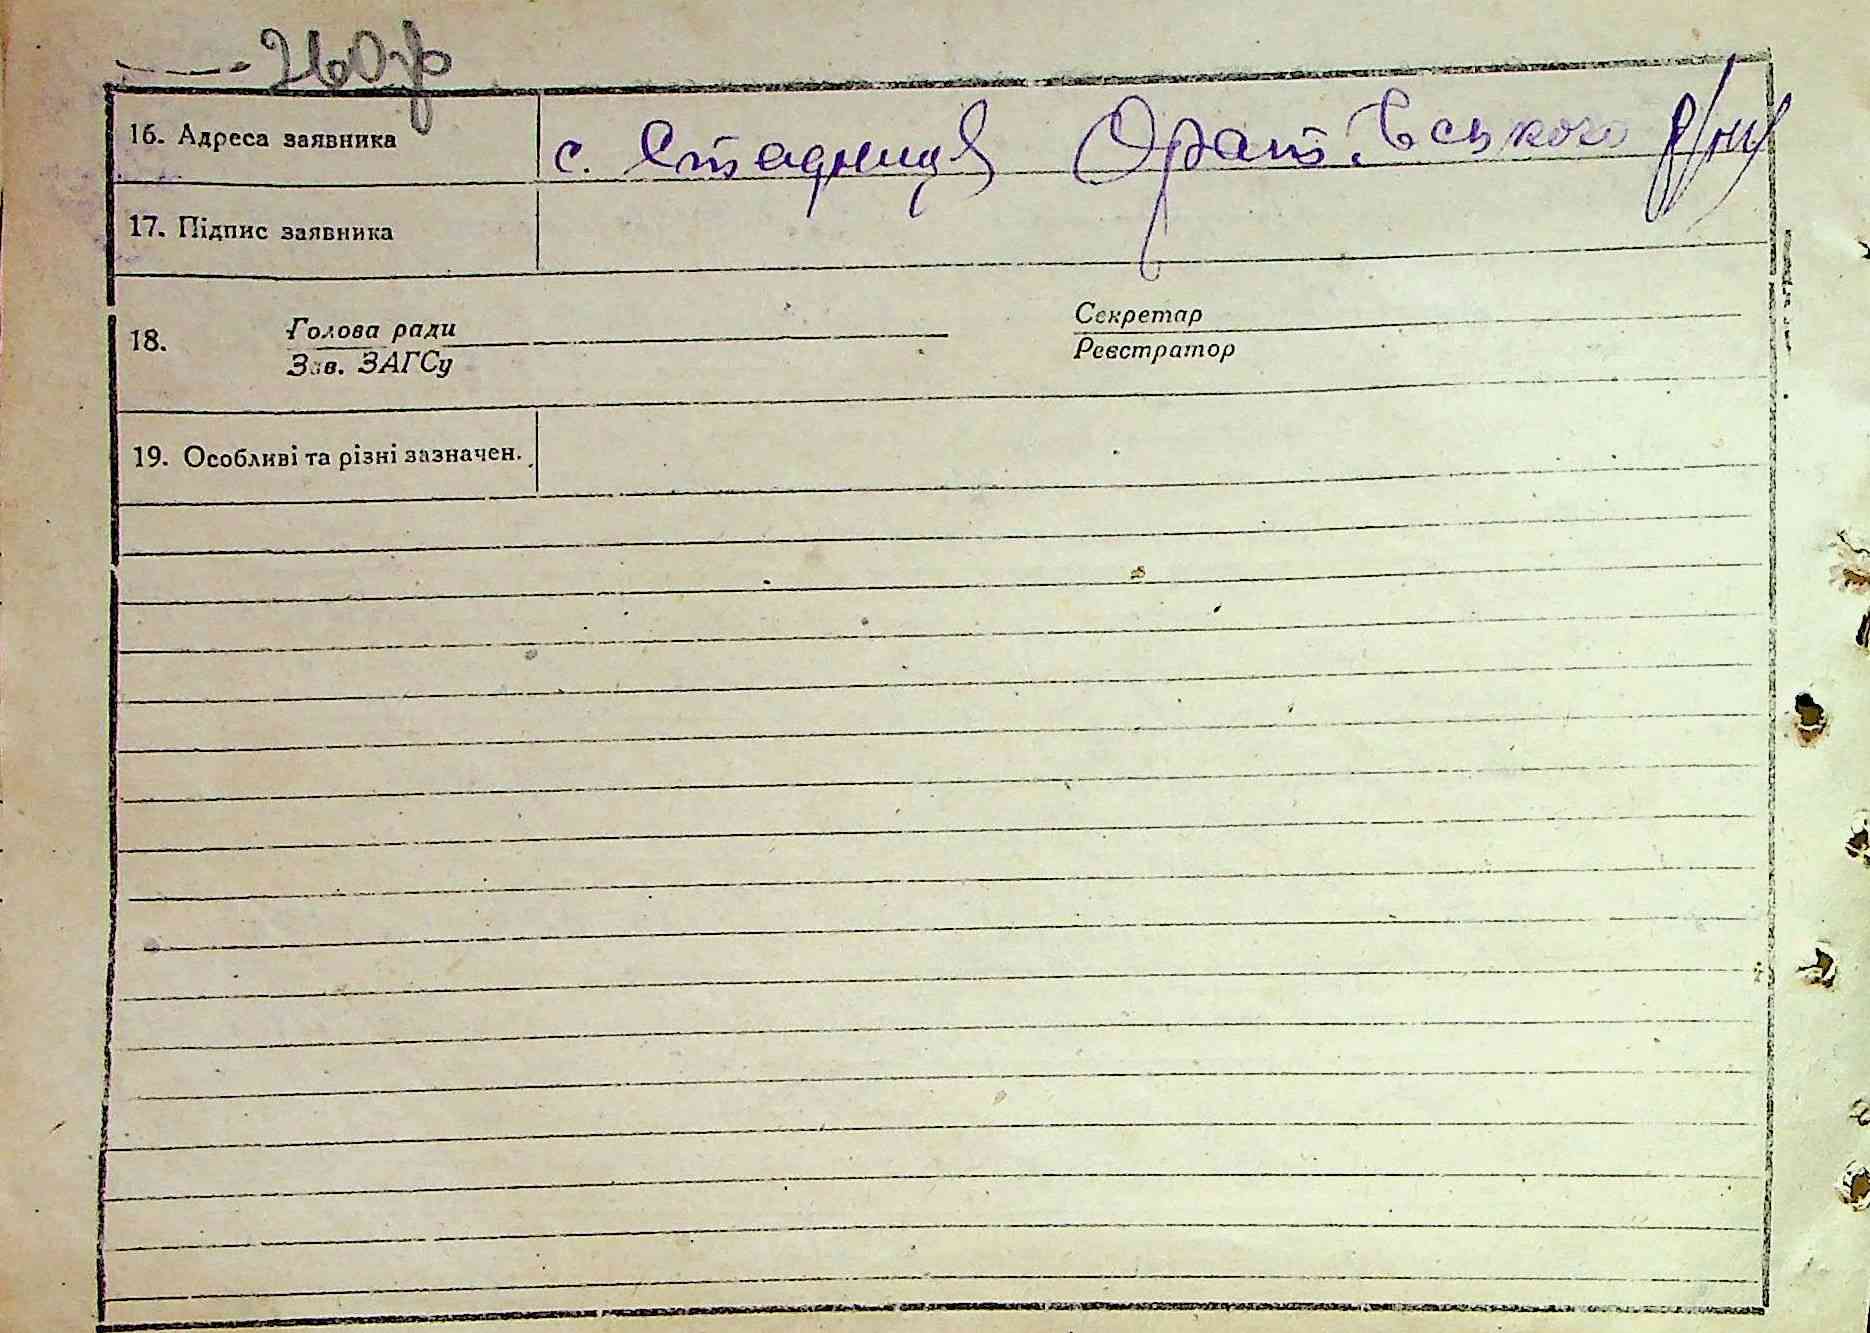 260зв
16. Адреса заявника с. Стадниця Оратівського р/ну
17. Підпис заявника
18. Голова ради Секретар
Зав. ЗАГСу Реєстратор
19. Особливі та різні зазначен.